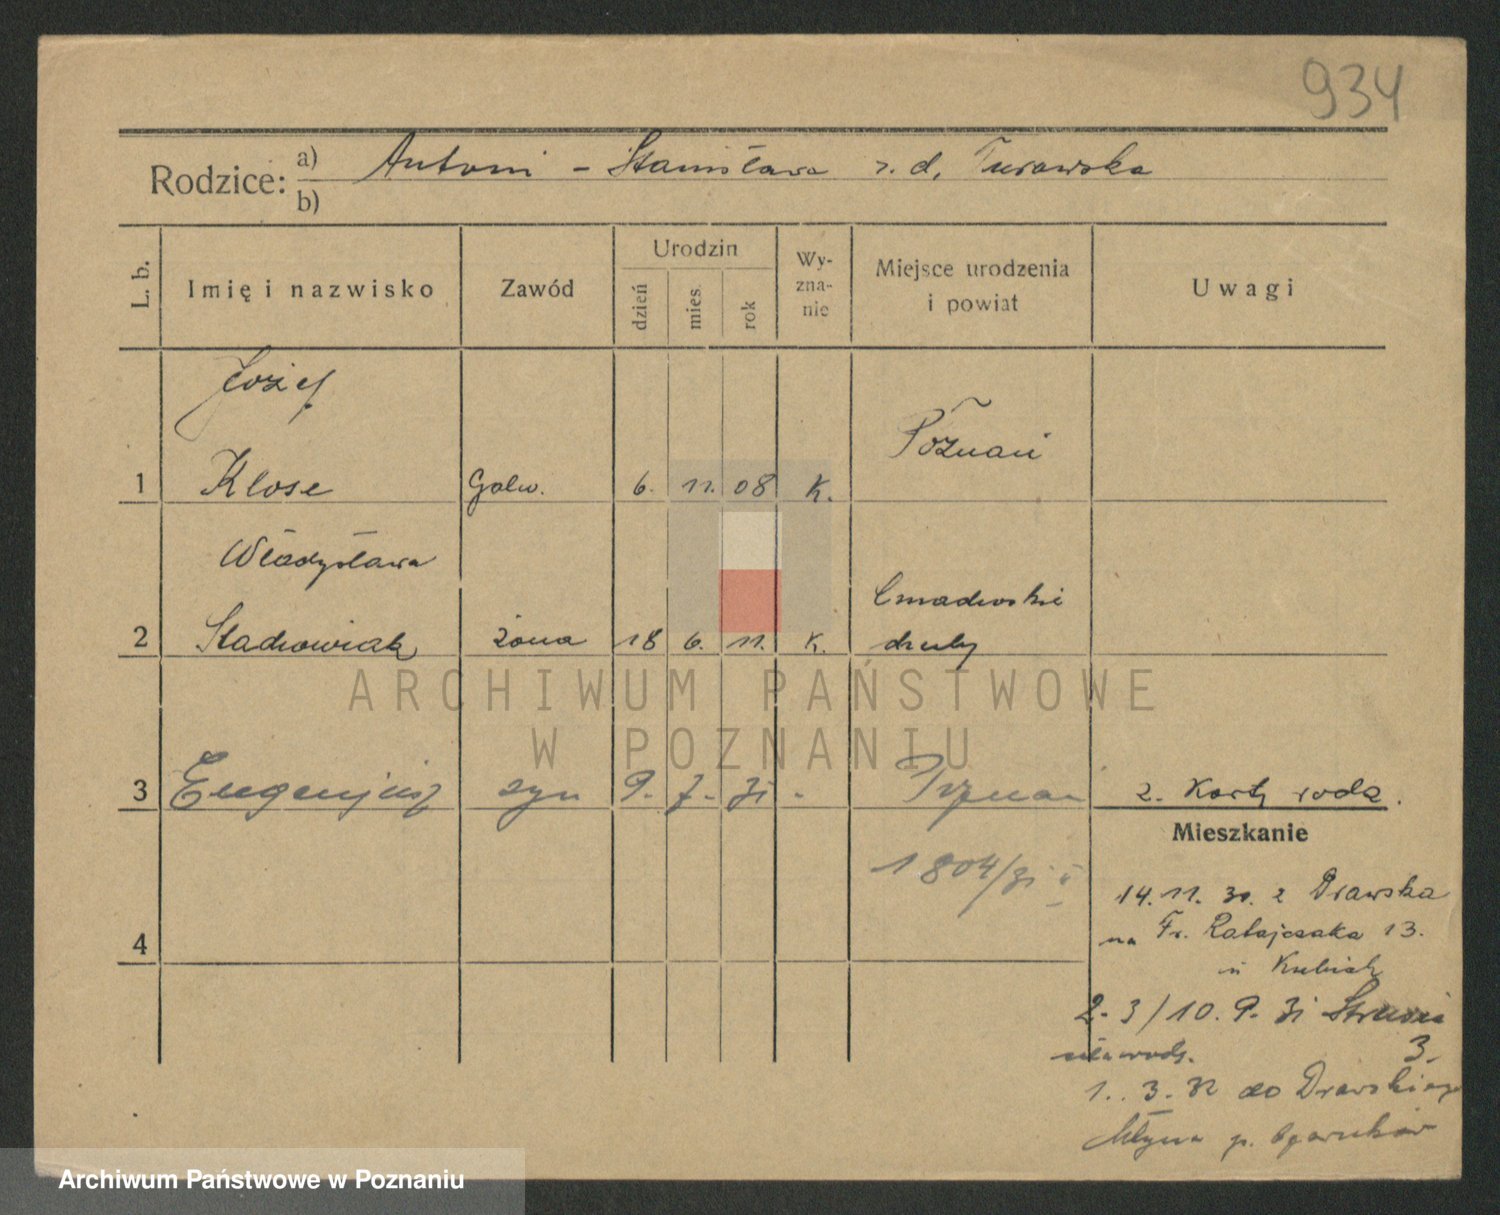 934
Rodzice: a) Antoni - Stanisława z. d. Turawska
b)
L. b.
Imię i nazwisko
Zawód
Urodzin
dzień
mies.
rok
Wy-
zna-
nie
Miejsce urodzenia
i powiat
Uwagi
Józef
Poznań
1 Klose Galw. 6. 11. 08 K.
Władysława
2 Stachowiak żona 18 6. 11. K.
ARCHIWUM PAŃSTWOWE
W POZNANIU
3 Eugenjusz syn 9. 7. 31 - Poznań
z. Karty rodz.
Mieszkanie
1804/31 II
14. 11. 30. z Drawska
na Fr. Ratajczaka 13.
u Kubiak
2. 3/10. 9. 31 Strusia
3.
4
1. 3. 32 do Drawski
Młyna p.
Archiwum Państwowe w Poznaniu